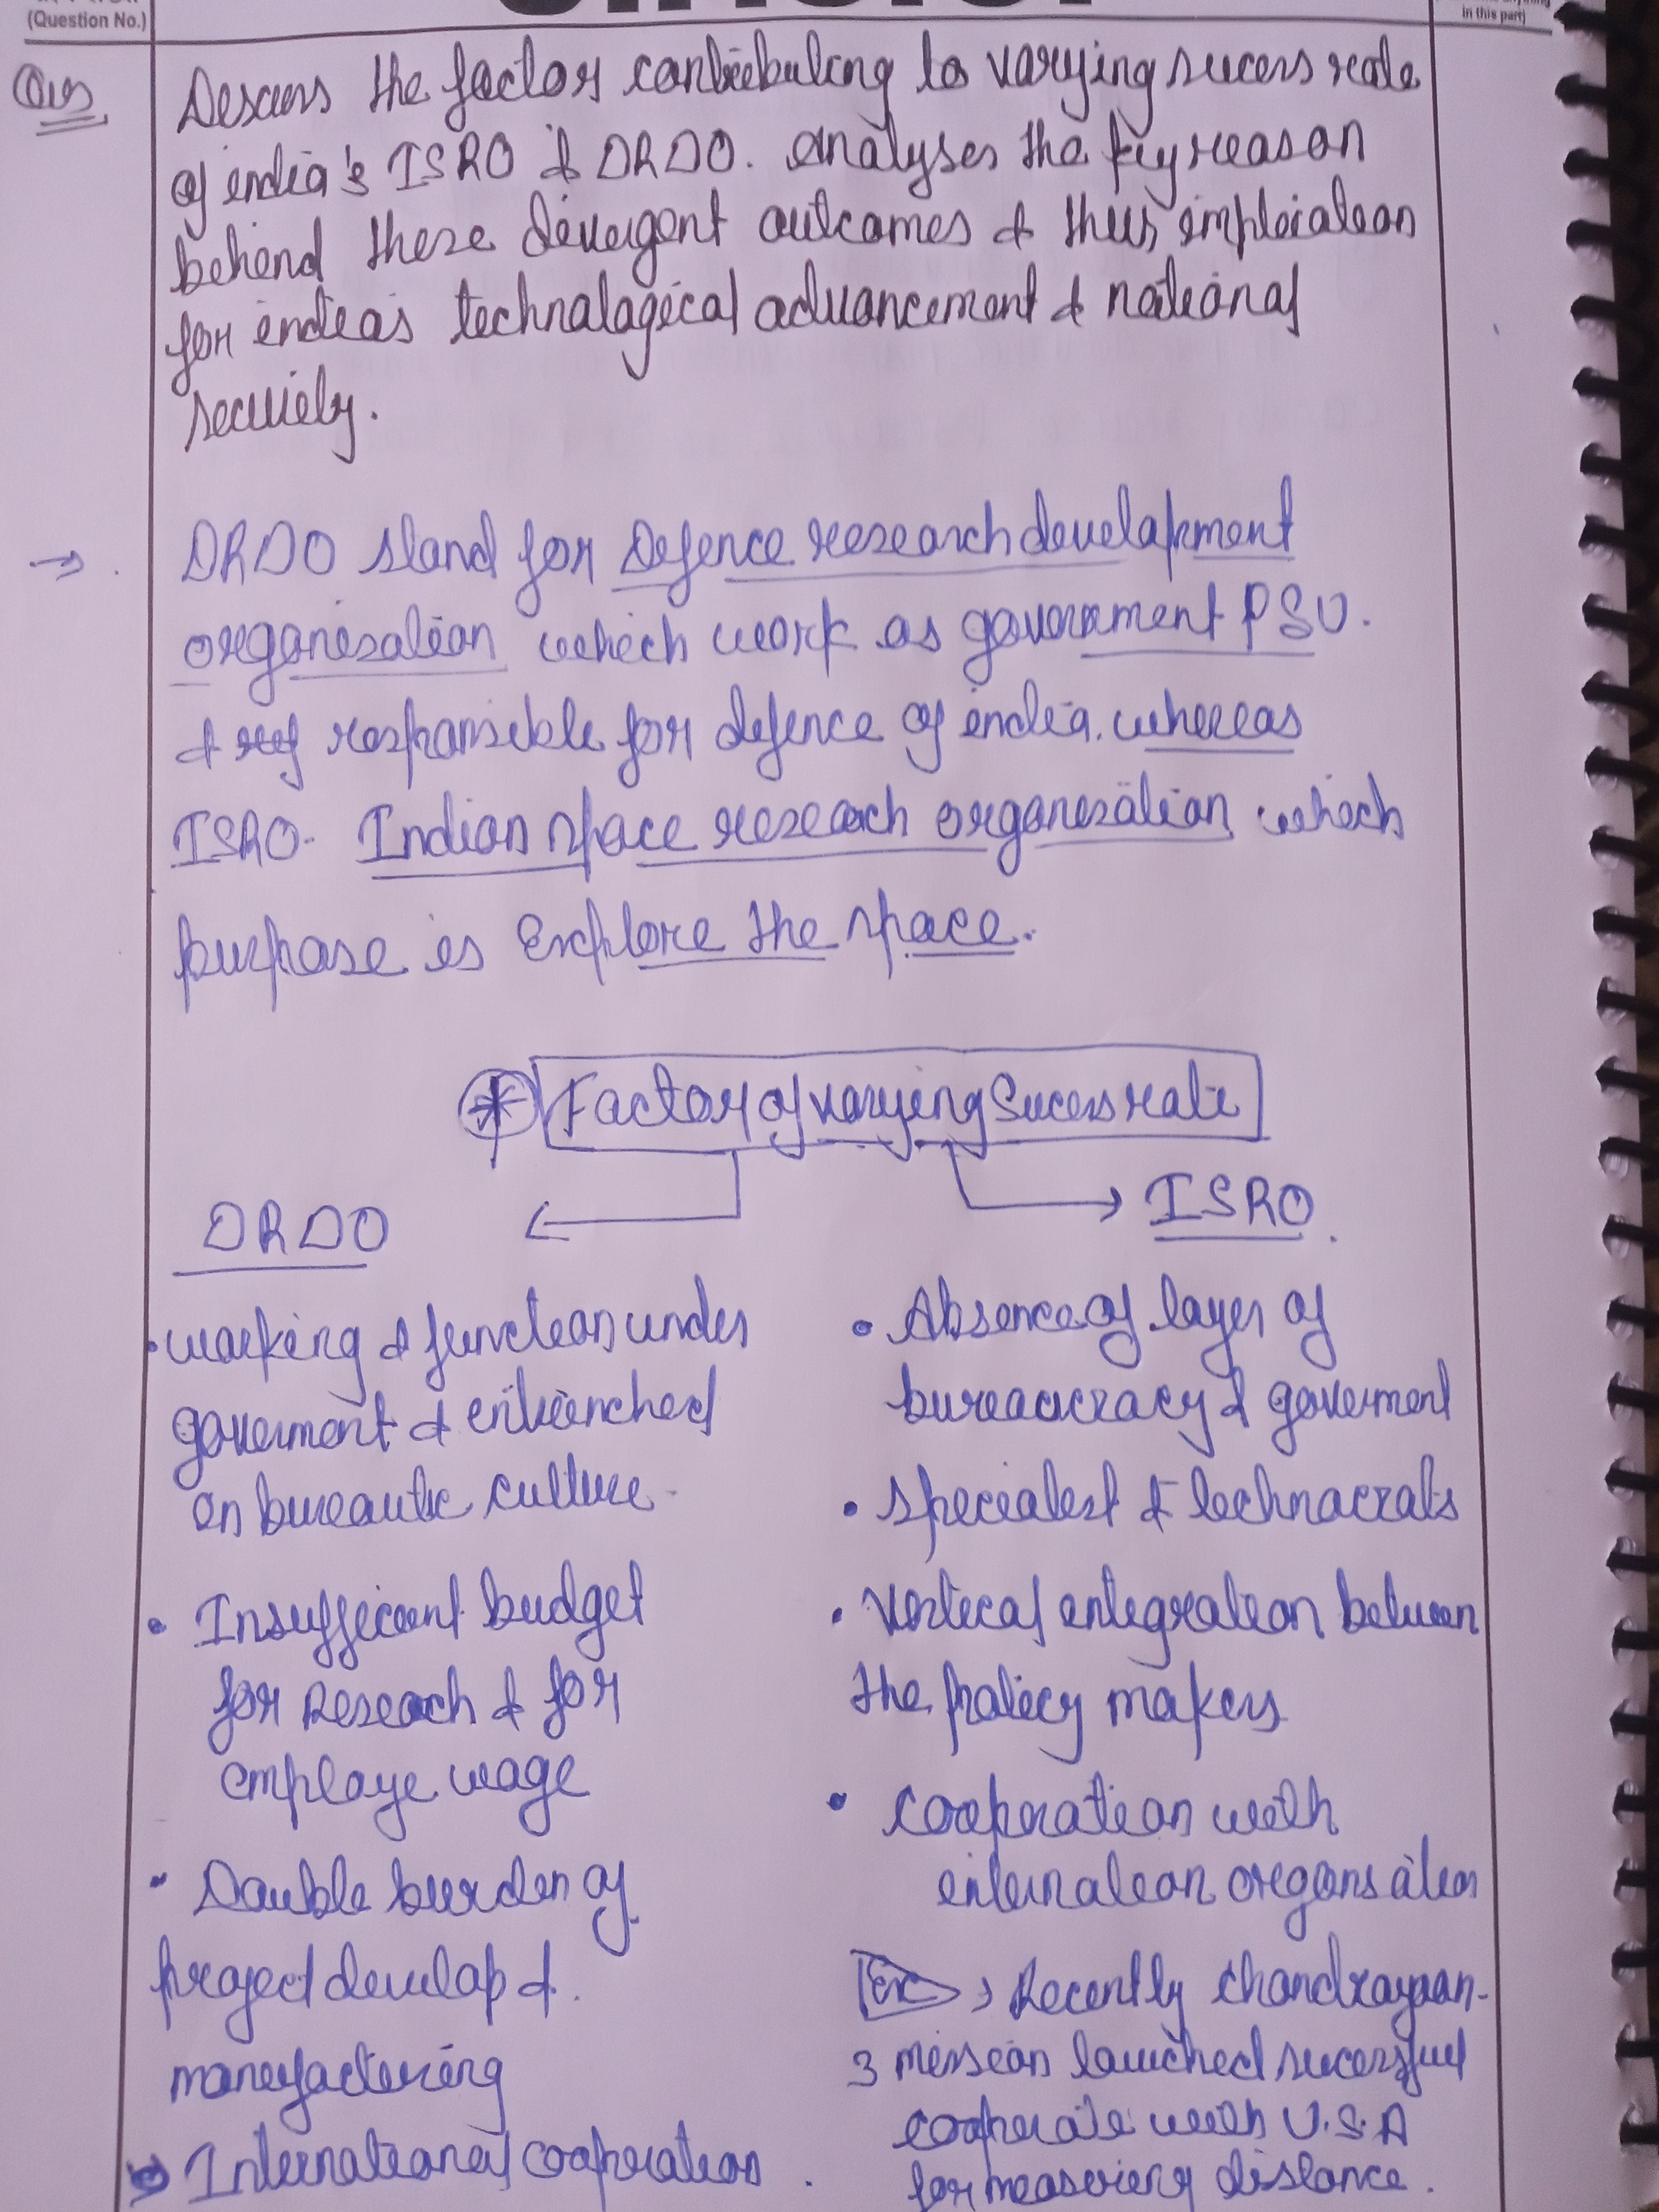 (Question No.)
in this part)
Ques
Discuss the factors contributing to varying sucess rate
of india's ISRO & DRDO. Analyses the key reason
behind these divergent outcomes & their implication
for india's technological advancement & national
security.
→ DRDO stand for Defence research development
organisation which work as government PSU.
& responsible for defence of india. whereas
ISRO- Indian space research organisation which
purpose is Explore the space.
Factor of varying Sucess rate
DRDO
ISRO.
• working & function under
goverment & entrenched
on bureautic culture.
• Insufficient budget
for Reseach & for
employe wage
• Double burden of
project develop &
manufacturing
• International cooperation.
• Absence of layer of
bureaucracy & goverment
• specialist & technocrats
• Vertical integration between
the policy makers
• cooperation with
organsation
Ex → Recently chandrayaan-
3 mission launched sucessful
cooperate with U.S.A
for measuring distance.